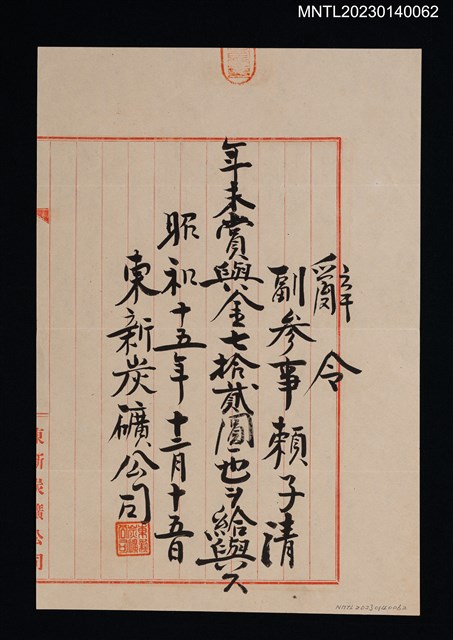 MNTL20230140062
辭令
副參事 賴子清
年末賞與金七拾貳圓也ヲ給與ス
昭和十五年十二月十五日
東新炭礦公司
東新炭礦公司
MNTL20230140062